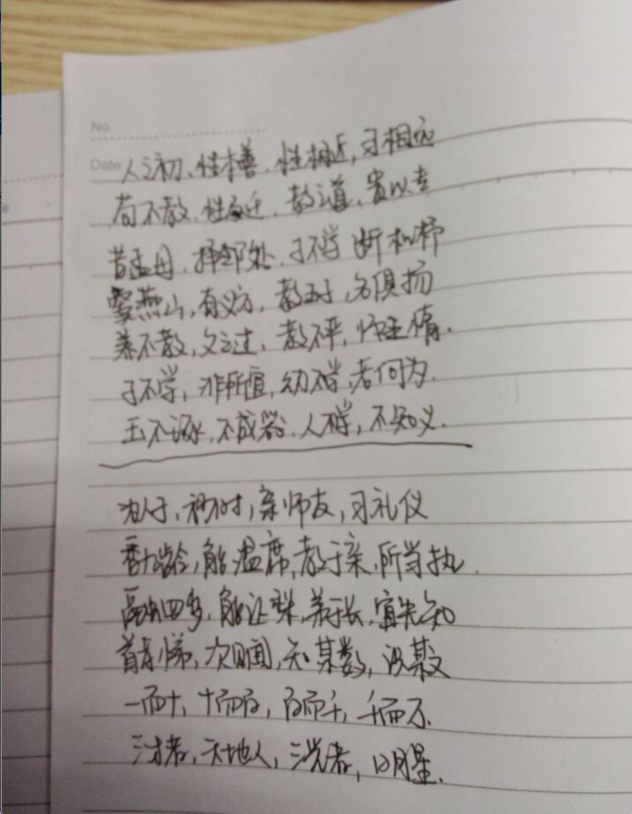 No.
Date
人之初,性本善.性相近,习相远
苟不教.性乃迁.教之道,贵以专
昔孟母.择邻处.子不学 断机杼
窦燕山,有义方,教五子,名俱扬
养不教,父之过,教不严,师之惰.
子不学,非所宜,幼不学,老何为.
玉不琢,不成器.人不学,不知义.
为人子,方少时,亲师友,习礼仪
香九龄,能温席,孝于亲,所当执.
融四岁,能让梨,弟于长,宜先知
首孝悌,次见闻,知某数,识某文
一而十,十而百,百而千,千而万.
三才者,天地人,三光者,日月星.